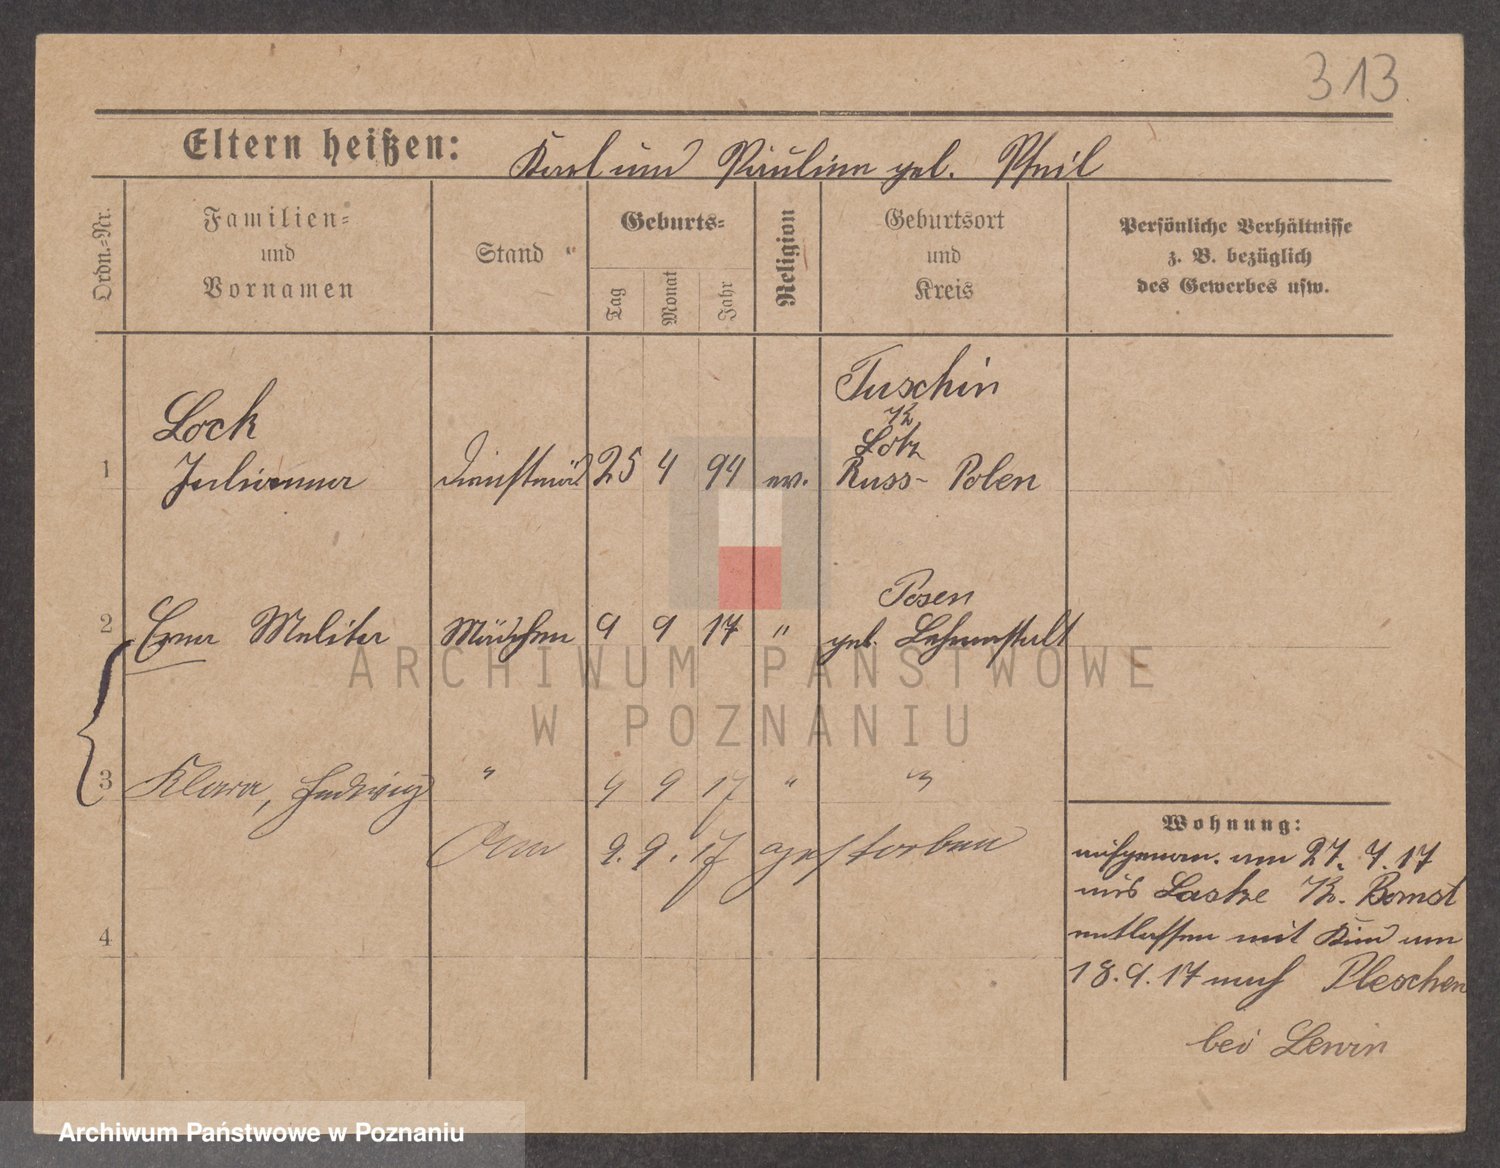 313
Eltern heißen: Karl und Pauline geb. Pfeil
Ordn.=Nr.
Familien=
und
Vornamen
Stand "
Geburts=
Tag
Monat
Jahr
Religion
Geburtsort
und
Kreis
Persönliche Verhältnisse
z. B. bezüglich
des Gewerbes usw.
Tuschin
Lock
K
Lotz
1 Julianna Dienstmäd 25 4 94 ev. Russ- Polen
Posen
2 Erna Melita Mädchen 9 9 17 " geb. Hebamstalt
ARCHIWUM PAŃSTWOWE
W POZNANIU
3 Klara, Hedwig " 9 9 17 " "
Am 9. 9. 17 gestorben
4
Wohnung:
aufgenom. am 27. 7. 17
aus Laske K. Bomst
entlassen mit Kind am
18. 9. 17 nach Pleschen
bei Lewin
Archiwum Państwowe w Poznaniu